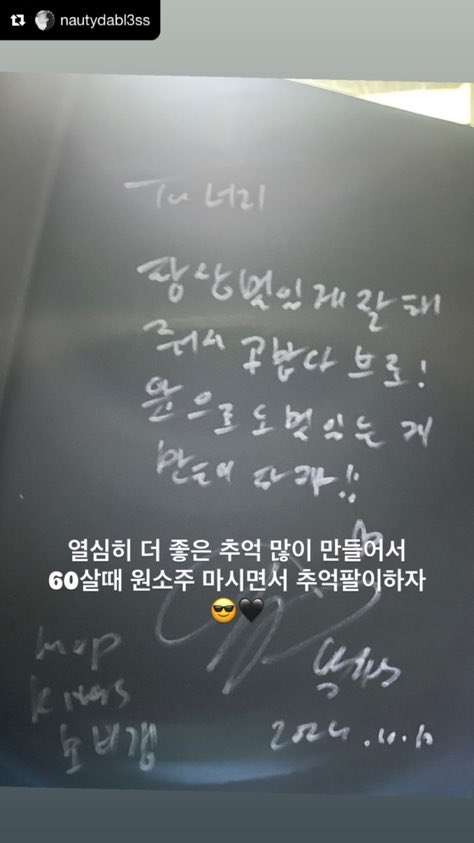 nautydabl3ss
To 너리
항상 멋있게 잘 해
줘서 고맙다 브로!
앞으로도 멋있는 거
만들어 나가자!!
열심히 더 좋은 추억 많이 만들어서
60살때 원소주 마시면서 추억팔이하자
😎🖤
MVP
모비갱
2024.10.10